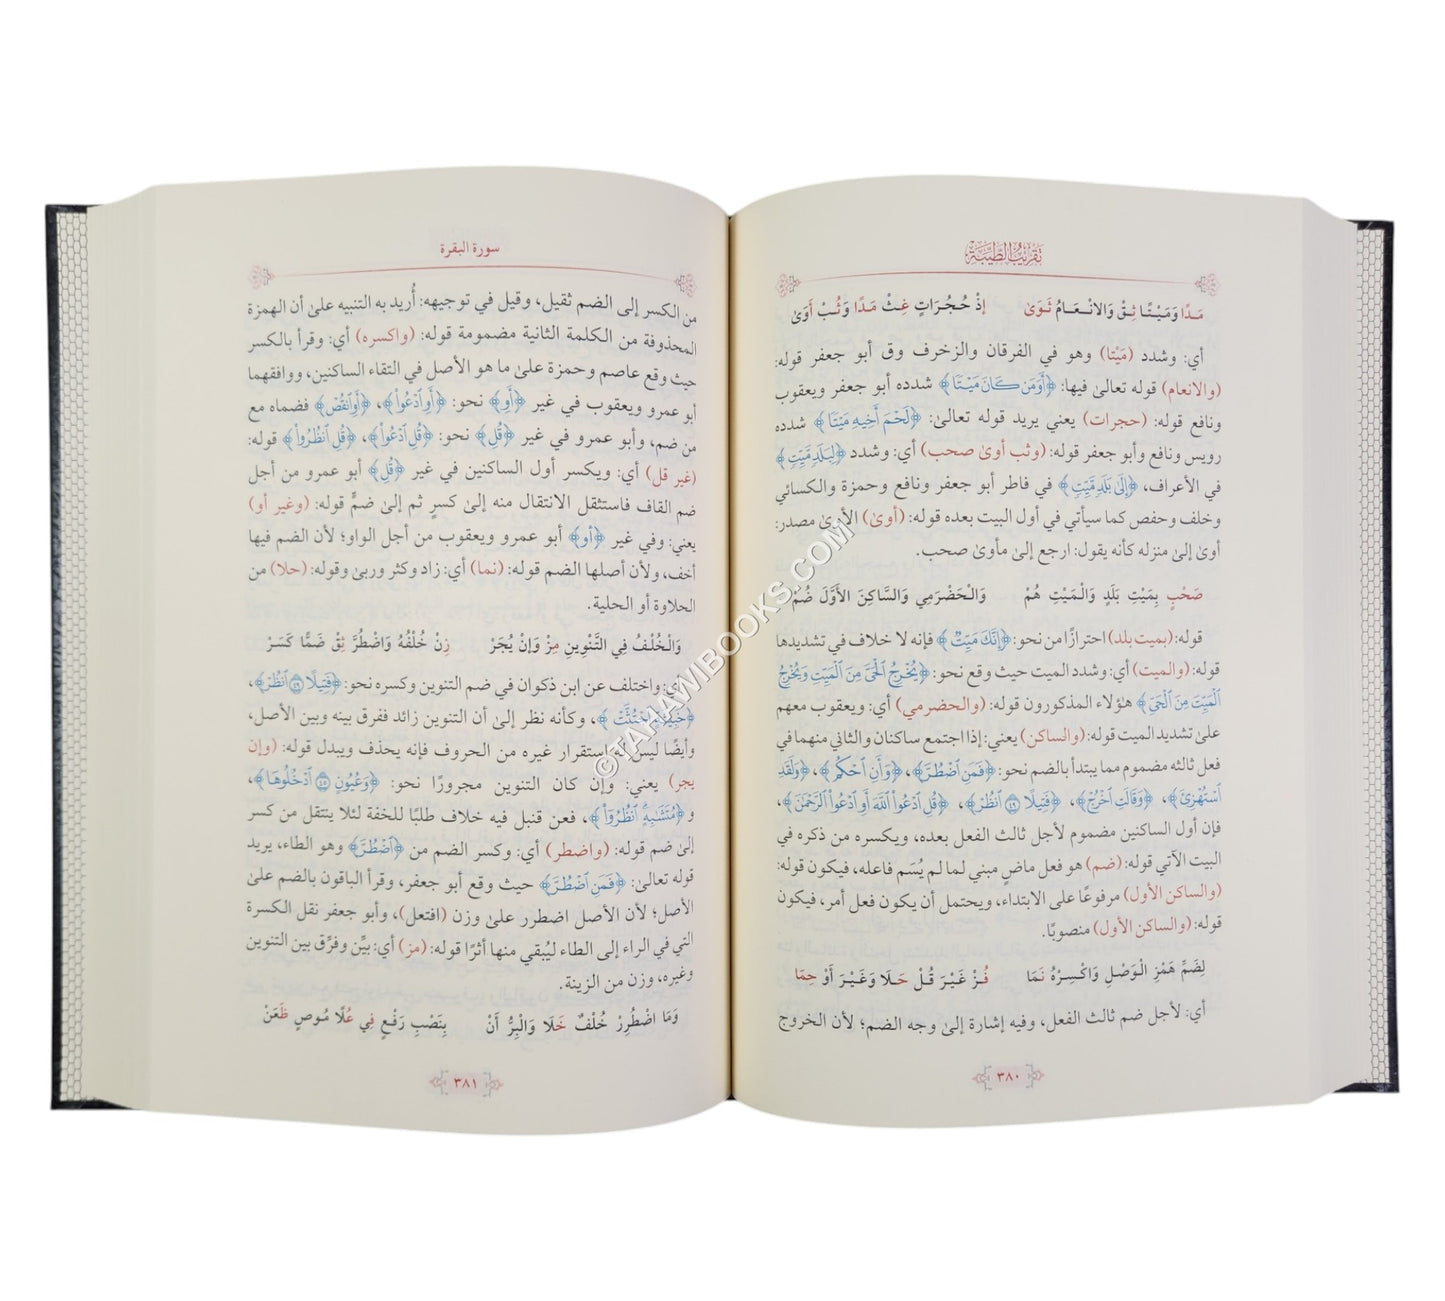 تقريب الطيبة
مَدًا وَمَيْتًا ثِقْ وَالانْعَامُ ثَوَىٰ إِذْ حُجُرَاتٍ غِثْ مَدًا وَثُبْ أَوَىٰ
أي: وشدد (مَيْتا) وهو في الفرقان والزخرف وق أبو جعفر قوله:
(والانعام) قوله تعالىٰ فيها: ﴿أَوَمَن كَانَ مَيْتًا﴾ شدده أبو جعفر ويعقوب
ونافع قوله: (حجرات) يعني يريد قوله تعالىٰ: ﴿لَحْمَ أَخِيهِ مَيْتًا﴾ شدده
رويس ونافع وأبو جعفر قوله: (وثب أوىٰ صحب) أي: وشدد ﴿لِبَلَدٍ مَّيِّتٍ﴾
في الأعراف، ﴿إِلَىٰ بَلَدٍ مَّيِّتٍ﴾ في فاطر أبو جعفر ونافع وحمزة والكسائي
وخلف وحفص كما سيأتي في أول البيت بعده قوله: (أوىٰ) الأوىٰ مصدر:
أوىٰ إلىٰ منزله كأنه يقول: ارجع إلىٰ مأوىٰ صحب.
صَحْبٍ بِمَيْتِ بَلَدٍ وَالْمَيْتِ هُمْ وَالْحَضْرَمِي وَالسَّاكِنَ الأَوَّلَ ضُمْ
قوله: (بميت بلد) احترازًا من نحو: ﴿إِنَّكَ مَيِّتٌ﴾ فإنه لا خلاف في تشديدها
قوله: (والميت) أي: وشدد الميت حيث وقع نحو: ﴿يُخْرِجُ الْحَيَّ مِنَ الْمَيِّتِ وَيُخْرِجُ
الْمَيِّتَ مِنَ الْحَيِّ﴾ هؤلاء المذكورون قوله: (والحضرمي) أي: ويعقوب معهم
علىٰ تشديد الميت قوله: (والساكن) يعني: إذا اجتمع ساكنان والثاني منهما في
فعل ثالثه مضموم مما يبتدأ بالضم نحو: ﴿فَمَنِ اضْطُرَّ﴾، ﴿وَأَنِ احْكُم﴾، ﴿وَلَقَدِ
اسْتُهْزِئَ﴾، ﴿وَقَالَتِ اخْرُجْ﴾، ﴿فَتِيلًا ٤٩ انظُرْ﴾، ﴿قُلِ ادْعُوا اللَّهَ أَوِ ادْعُوا الرَّحْمَٰنَ﴾،
فإن أول الساكنين مضموم لأجل ثالث الفعل بعده، ويكسره من ذكره في
البيت الآتي قوله: (ضم) هو فعل ماضٍ مبني لما لم يُسَم فاعله، فيكون قوله:
(والساكن الأول) مرفوعًا على الابتداء، ويحتمل أن يكون فعل أمر، فيكون
قوله: (والساكن الأول) منصوبًا.
لِضَمِّ هَمْزِ الْوَصْلِ وَاكْسِرْهُ نَمَا فُزْ غَيْرَ قُلْ حَلَا وَغَيْرَ أَوْ حِمَا
أي: لأجل ضم ثالث الفعل، وفيه إشارة إلىٰ وجه الضم؛ لأن الخروج
٣٨٠
سورة البقرة
من الكسر إلى الضم ثقيل، وقيل في توجيهه: أُريد به التنبيه علىٰ أن الهمزة
المحذوفة من الكلمة الثانية مضمومة قوله: (واكسره) أي: وقرأ بالكسر
حيث وقع عاصم وحمزة علىٰ ما هو الأصل في التقاء الساكنين، ووافقهما
أبو عمرو ويعقوب في غير ﴿أَو﴾ نحو: ﴿أَوِ ادْعُوا﴾، ﴿أَوِ انقُصْ﴾ فضماه مع
من ضم، وأبو عمرو في غير ﴿قُل﴾ نحو: ﴿قُلِ ادْعُوا﴾، ﴿قُلِ انظُرُوا﴾ قوله:
(غير قل) أي: ويكسر أول الساكنين في غير ﴿قُل﴾ أبو عمرو من أجل
ضم القاف فاستثقل الانتقال منه إلىٰ كسرٍ ثم إلىٰ ضمٍّ قوله: (وغير أو)
يعني: وفي غير ﴿أو﴾ أبو عمرو ويعقوب من أجل الواو؛ لأن الضم فيها
أخف، ولأن أصلها الضم قوله: (نما) أي: زاد وكثر وربىٰ وقوله: (حلا) من
الحلاوة أو الحلية.
وَالْخُلْفُ فِي التَّنْوِينِ مِزْ وَإِنْ يُجَرْ زِنْ خُلْفُهُ وَاضْطُرَّ ثِقْ ضَمًّا كَسَرْ
أي: واختلف عن ابن ذكوان في ضم التنوين وكسره نحو: ﴿فَتِيلًا ٤٩ انظُرْ﴾،
﴿خَبِيثَةٍ اجْتُثَّتْ﴾، وكأنه نظر إلىٰ أن التنوين زائد ففرق بينه وبين الأصل،
وأيضًا ليس له استقرار غيره من الحروف فإنه يحذف ويبدل قوله: (وإن
يجر) يعني: وإن كان التنوين مجرورًا نحو: ﴿وَعُيُونٍ ٤٥ ادْخُلُوهَا﴾،
و﴿مُتَشَابِهٍ انظُرُوا﴾، فعن قنبل فيه خلاف طلبًا للخفة لئلا ينتقل من كسر
إلىٰ ضم قوله: (واضطر) أي: وكسر الضم من ﴿اضْطُرَّ﴾ وهو الطاء، يريد
قوله تعالىٰ: ﴿فَمَنِ اضْطُرَّ﴾ حيث وقع أبو جعفر، وقرأ الباقون بالضم علىٰ
الأصل؛ لأن الأصل اضطرر علىٰ وزن (افتعل)، وأبو جعفر نقل الكسرة
التي في الراء إلى الطاء ليُبقي منها أثرًا قوله: (مز) أي: بيِّن وفرِّق بين التنوين
وغيره، وزن من الزينة.
وَمَا اضْطُرِرْ خُلْفٌ خَلَا وَالْبِرُّ أَنْ بِنَصْبِ رَفْعٍ فِي عُلًا مُوصٍ ظَعَنْ
٣٨١
©TAHAWIBOOKS.COM